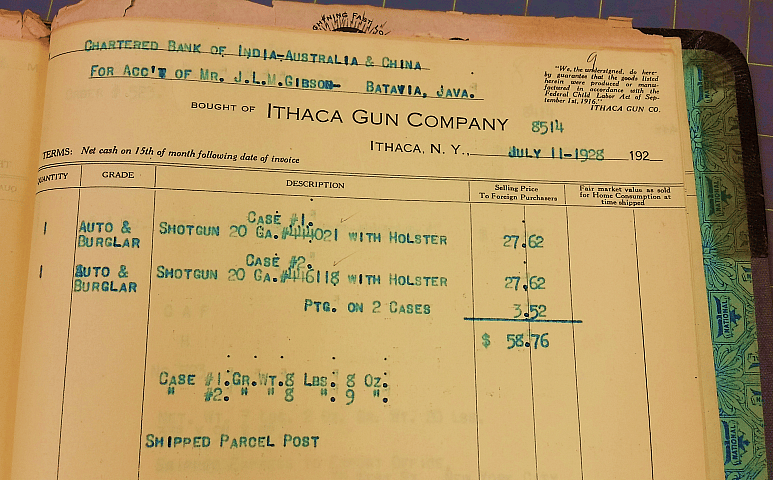 CHARTERED BANK OF INDIA-AUSTRALIA & CHINA
FOR ACC'T OF MR. J.L.M.GIBSON- BATAVIA, JAVA.
9
"We, the undersigned, do here-
by guarantee that the goods listed
herein were produced or manu-
factured in accordance with the
Federal Child Labor Act of Sep-
tember 1st, 1916."
ITHACA GUN CO.
BOUGHT OF ITHACA GUN COMPANY
8514
ITHACA, N. Y., JULY 11-1928 192
TERMS: Net cash on 15th of month following date of invoice
QUANTITY GRADE DESCRIPTION Selling Price To Foreign Purchasers Fair market value as sold for Home Consumption at time shipped
CASE #1.
1 AUTO & BURGLAR SHOTGUN 20 GA.#444021 WITH HOLSTER 27.62
CASE #2.
1 AUTO & BURGLAR SHOTGUN 20 GA.#446118 WITH HOLSTER 27.62
PTG. ON 2 CASES 3.52
$ 58.76
CASE #1.GR.WT.8 LBS. 8 OZ.
" #2. " " 8 ". 9 ".
SHIPPED PARCEL POST
NATIONAL
NATIONAL
NATIONAL